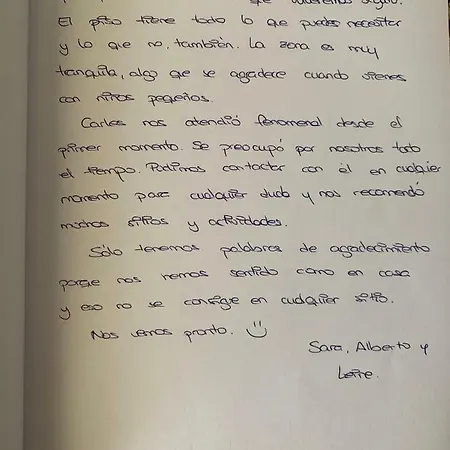 que volveremos seguro.
El piso tiene todo lo que puedes necesitar
y lo que no, también. La zona es muy
tranquila, algo que se agradece cuando vienes
con niños pequeños.
Carlos nos atendió fenomenal desde el
primer momento. Se preocupó por nosotros todo
el tiempo. Podíamos contactar con él en cualquier
momento para cualquier duda y nos recomendó
muchos sitios y actividades.
Sólo tenemos palabras de agradecimiento
porque nos hemos sentido como en casa
y eso no se consigue en cualquier sitio.
Nos vemos pronto.
Sara, Alberto y
Leire.